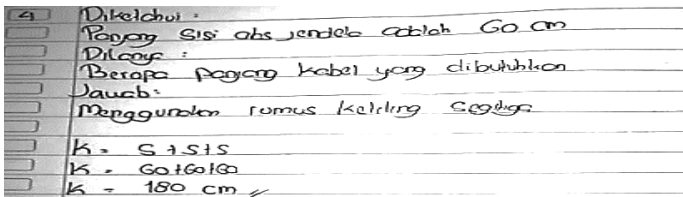 4 Diketahui :
Panjang sisi alas jendela adalah 60 cm
Ditanya :
Berapa panjang kabel yang dibutuhkan
Jawab :
Menggunakan rumus keliling segitiga
K = S + S + S
K = 60+60+60
K = 180 cm //